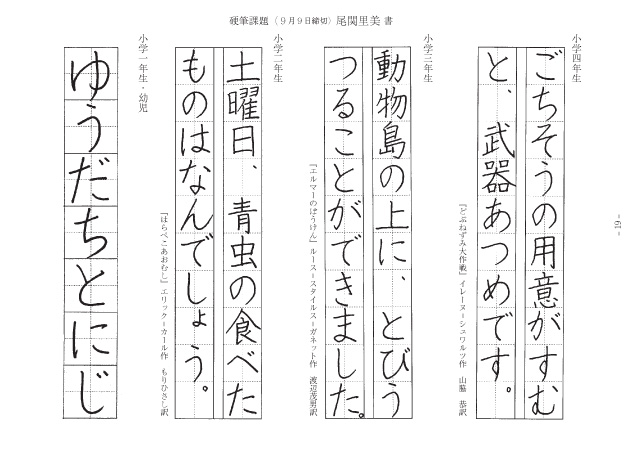 硬筆課題（９月９日締切）尾関里美 書
小学四年生
ごちそうの用意がすむ
と、武器あつめです。
『どぶねずみ大作戦』イレーヌ＝シュワルツ作　山脇　恭訳
小学三年生
動物島の上に、とびう
つることができました。
『エルマーのぼうけん』ルース＝スタイルス＝ガネット作　渡辺茂男訳
小学二年生
土曜日、青虫の食べた
ものはなんでしょう。
『はらぺこあおむし』エリック＝カール作　もりひさし訳
小学一年生・幼児
ゆうだちとにじ
- 19 -